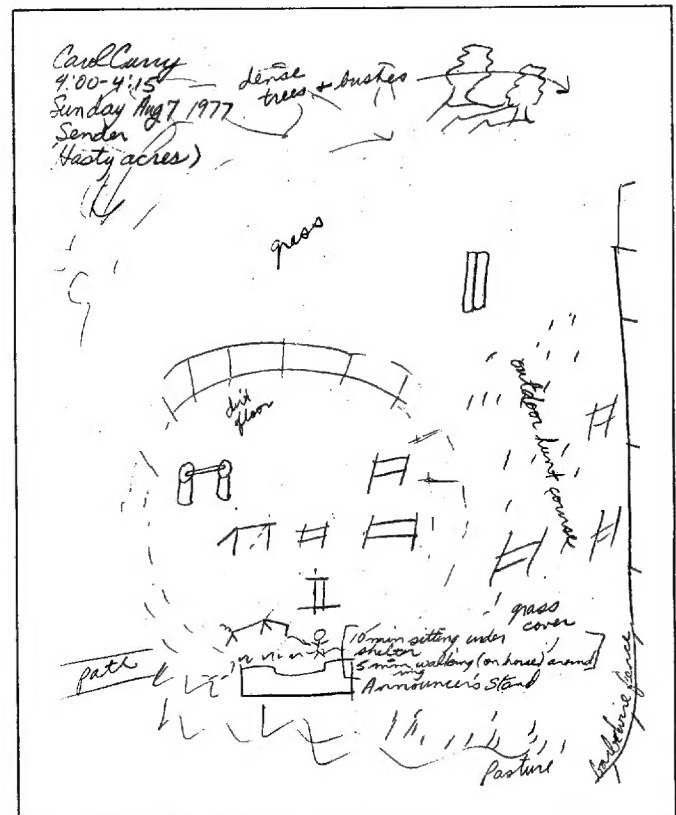 Carol Curry
4:00-4:15
Sunday Aug 7 1977
Sender
(Hasty acres)
dense
trees + bushes
grass
dirt
floor
outdoor hunt course
grass
cover
10 min sitting under
shelter
5 min walking (on horse) around
ring
Announcer's Stand
path
Pasture
barbwire fence